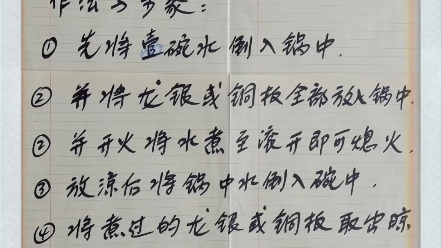 作法与步骤：
① 先将壹碗水倒入锅中.
② 并将龙银或铜板全部放入锅中.
② 并开火将水煮至滚开即可熄火.
③ 放凉后将锅中水倒入碗中.
④ 将煮过的龙银或铜板取出晾